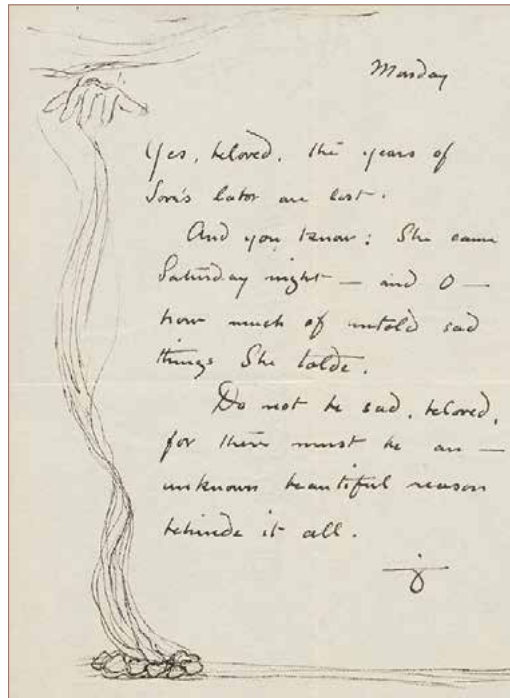 Monday
Yes, beloved, the years of
Love's labor are lost.
And you know: She came
Saturday night — and O —
how much of untold sad
things She tolde.
Do not be sad, beloved,
for there must be an —
unknown beautiful reason
behinde it all.